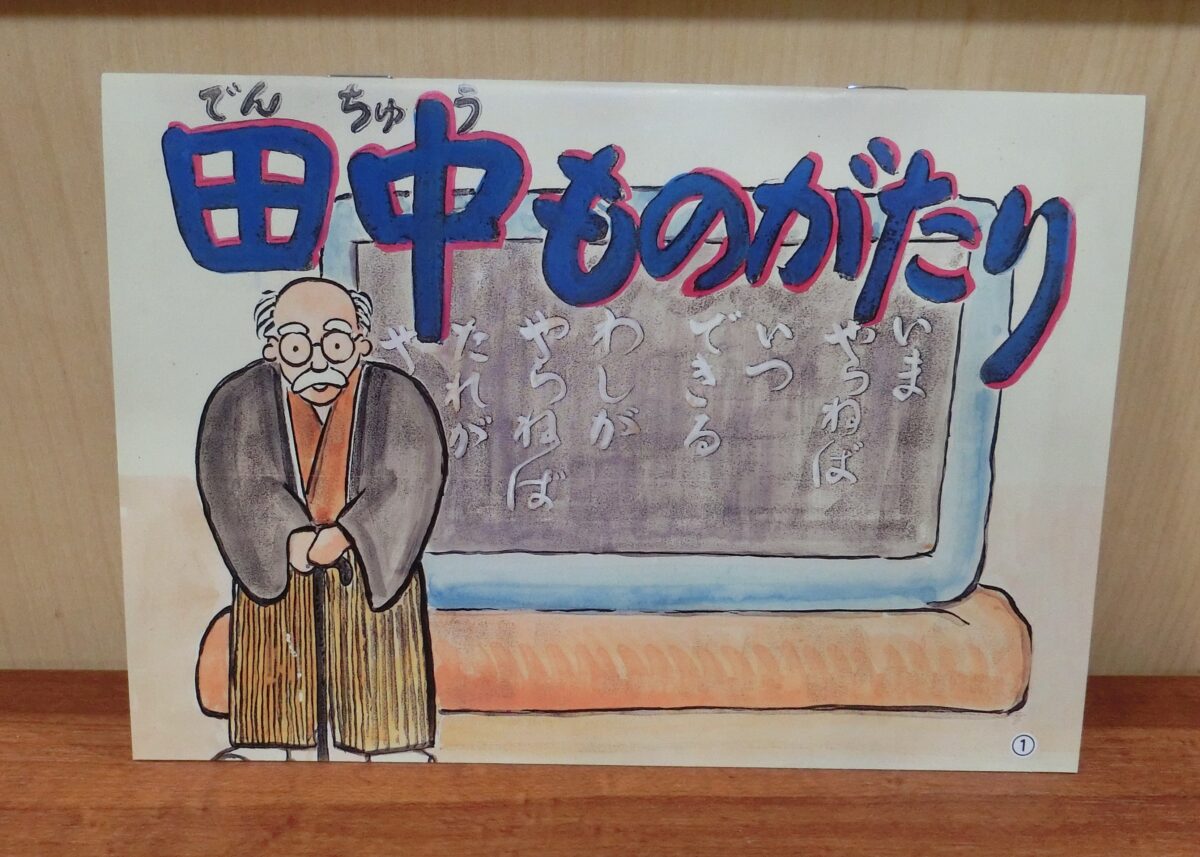 でん ちゅう
田中ものがたり
いま
やらねば
いつ
できる
わしが
やらねば
たれが
や
①